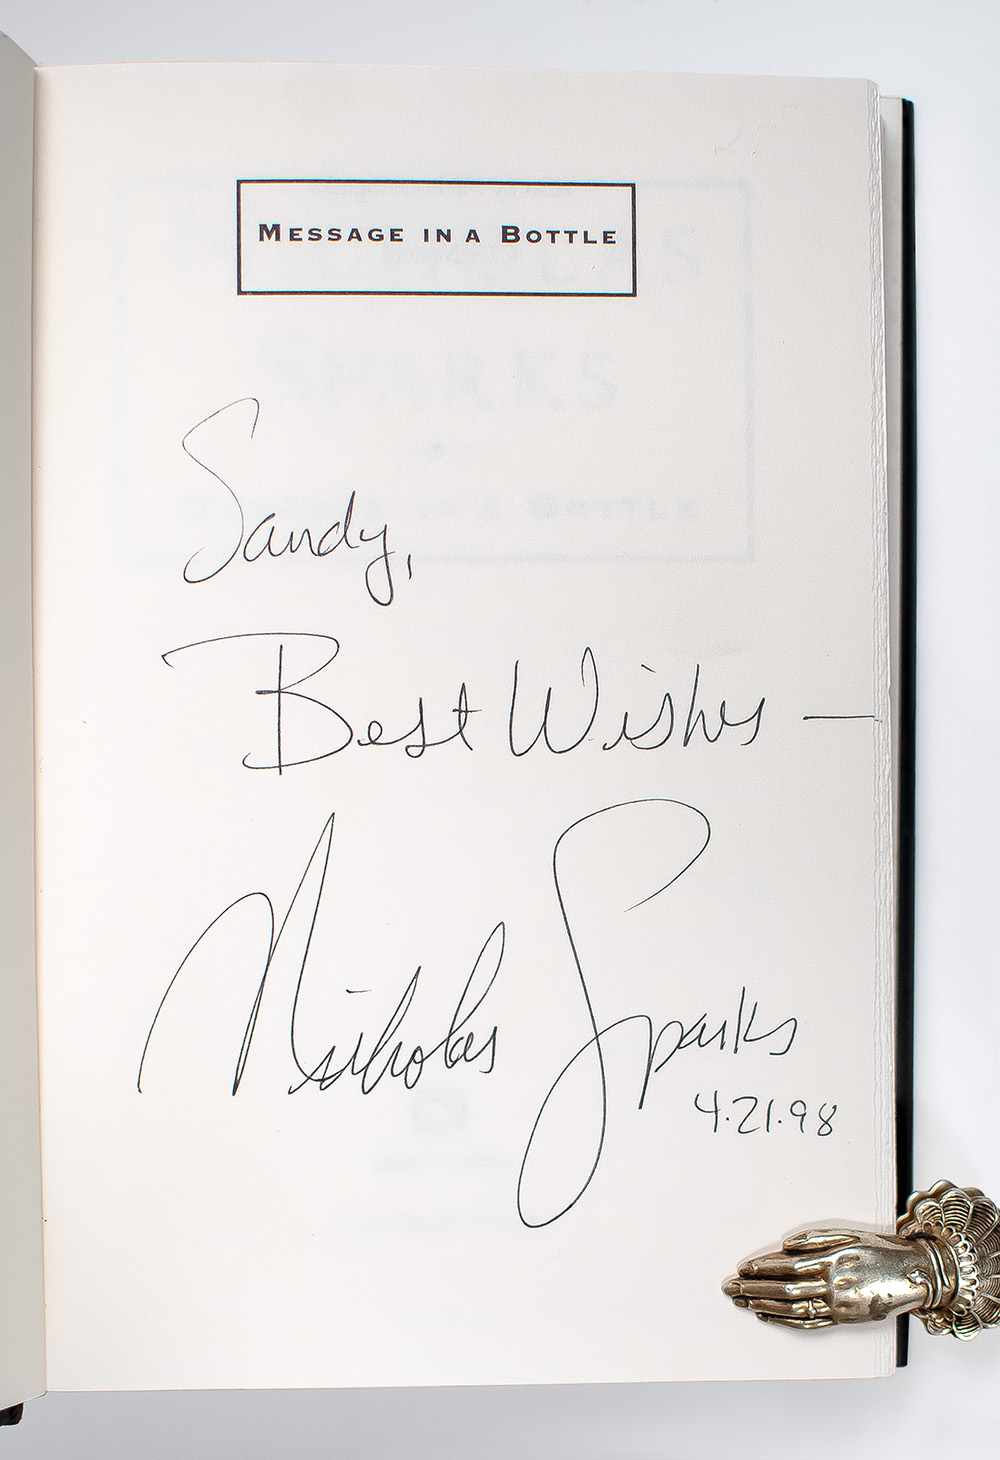 MESSAGE IN A BOTTLE
Sandy,
Best Wishes —
Nicholas Sparks
4.21.98